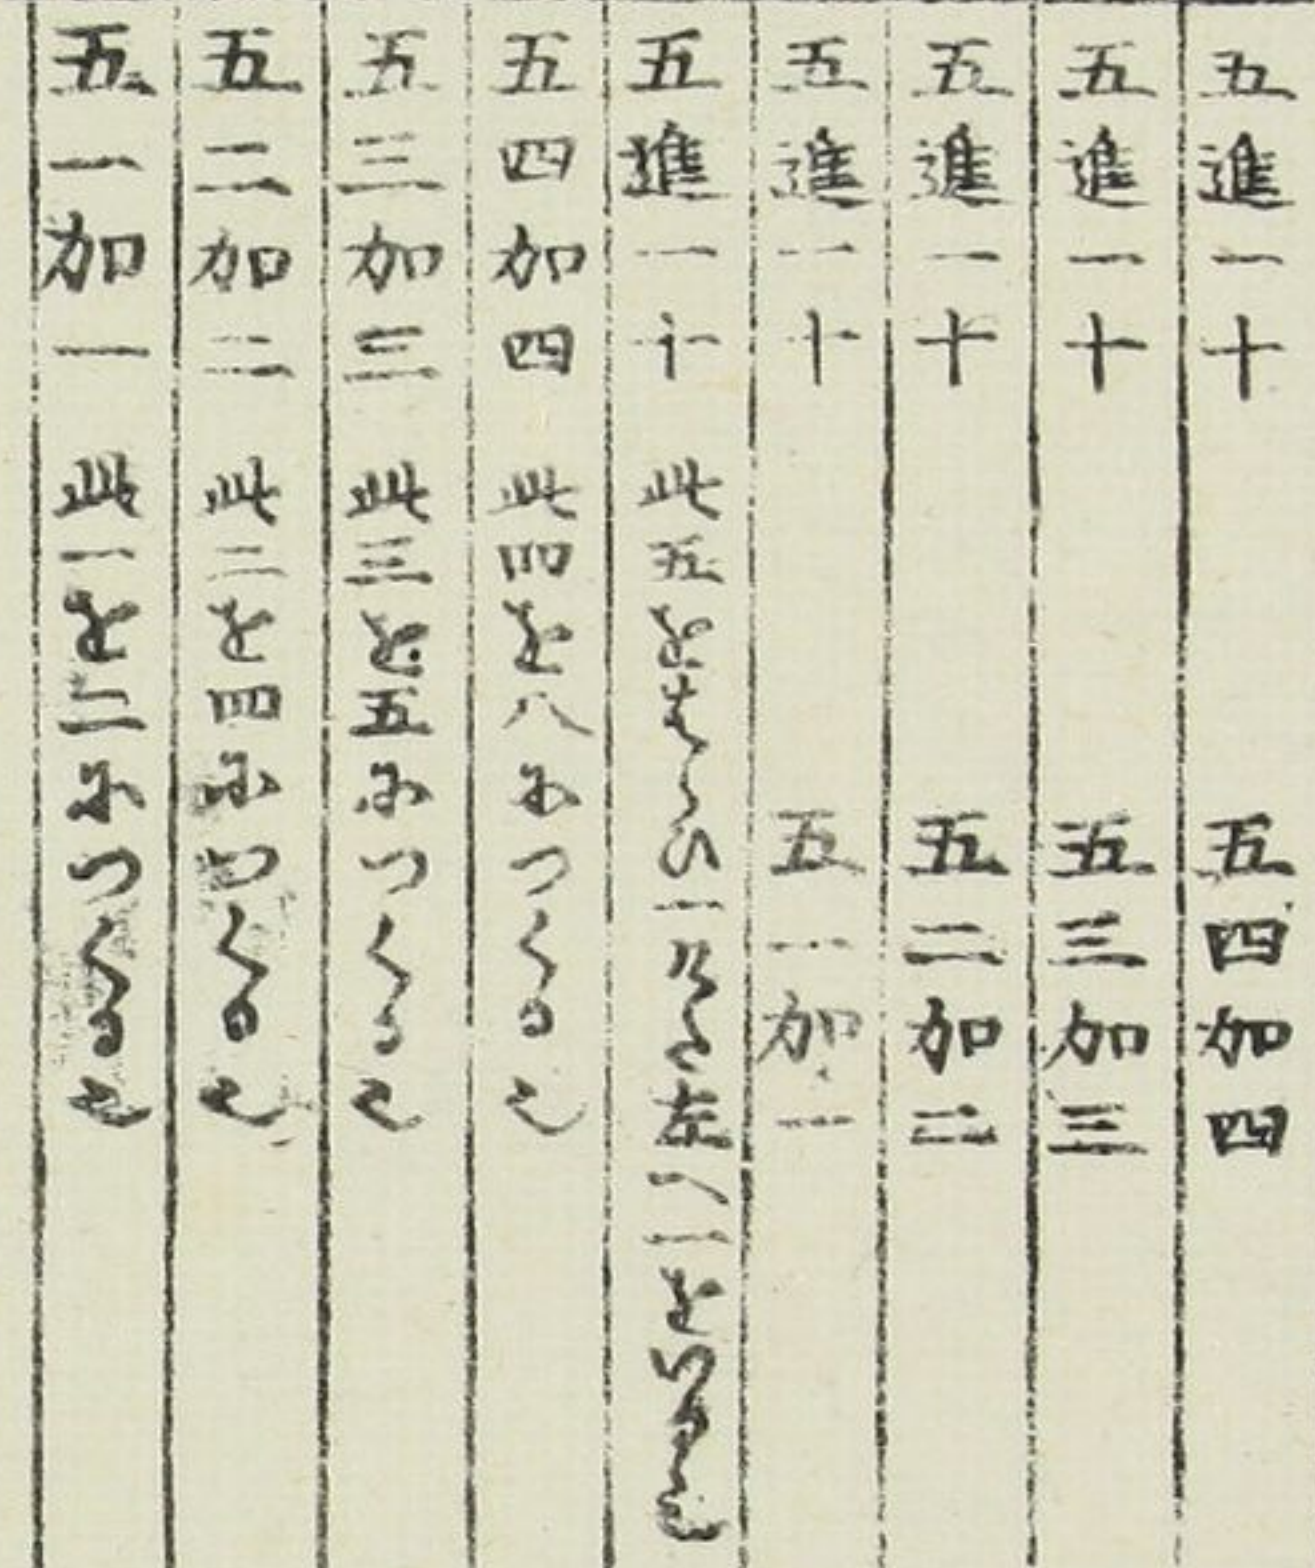 五進一十 五四加四
五進一十 五三加三
五進一十 五二加二
五進一十 五一加一
五進一十 此五をはらひ一けた左へ一をいるゝ也
五四加四 此四を八につくる也
五三加三 此三を五につくる也
五二加二 此二を四につくる也
五一加一 此一を二につくる也